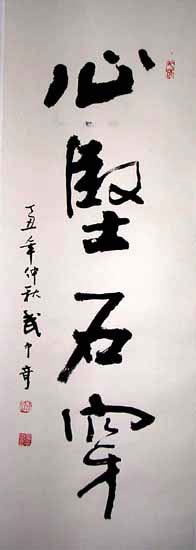 心堅石穿
丁丑年仲秋武中奇